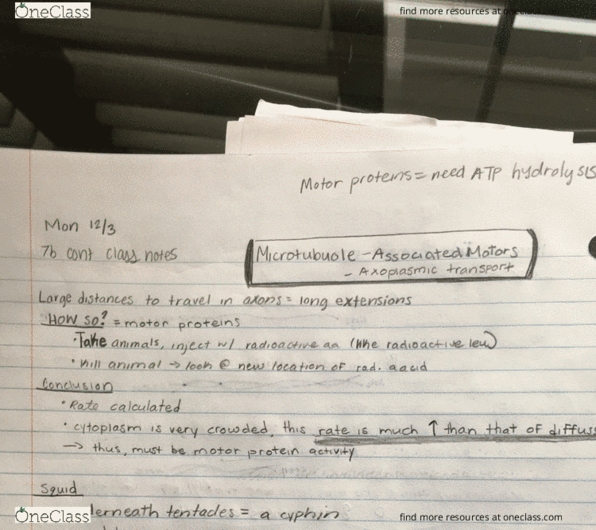 OneClass
find more resources at oneclass.com
Motor proteins = need ATP hydrolysis
Mon 12/3
7b cont class notes
Microtubuole - Associated Motors
- Axoplasmic transport
Large distances to travel in axons = long extensions
How so? = motor proteins
• Take animals, inject w/ radioactive aa (like radioactive leu)
• Kill animal → look @ new location of rad. aacid
Conclusion
• Rate calculated
• cytoplasm is very crowded, this rate is much ↑ than that of diffus
→ thus, must be motor protein activity
Squid
erneath tentacles = a cyphin
OneClass
find more resources at oneclass.com